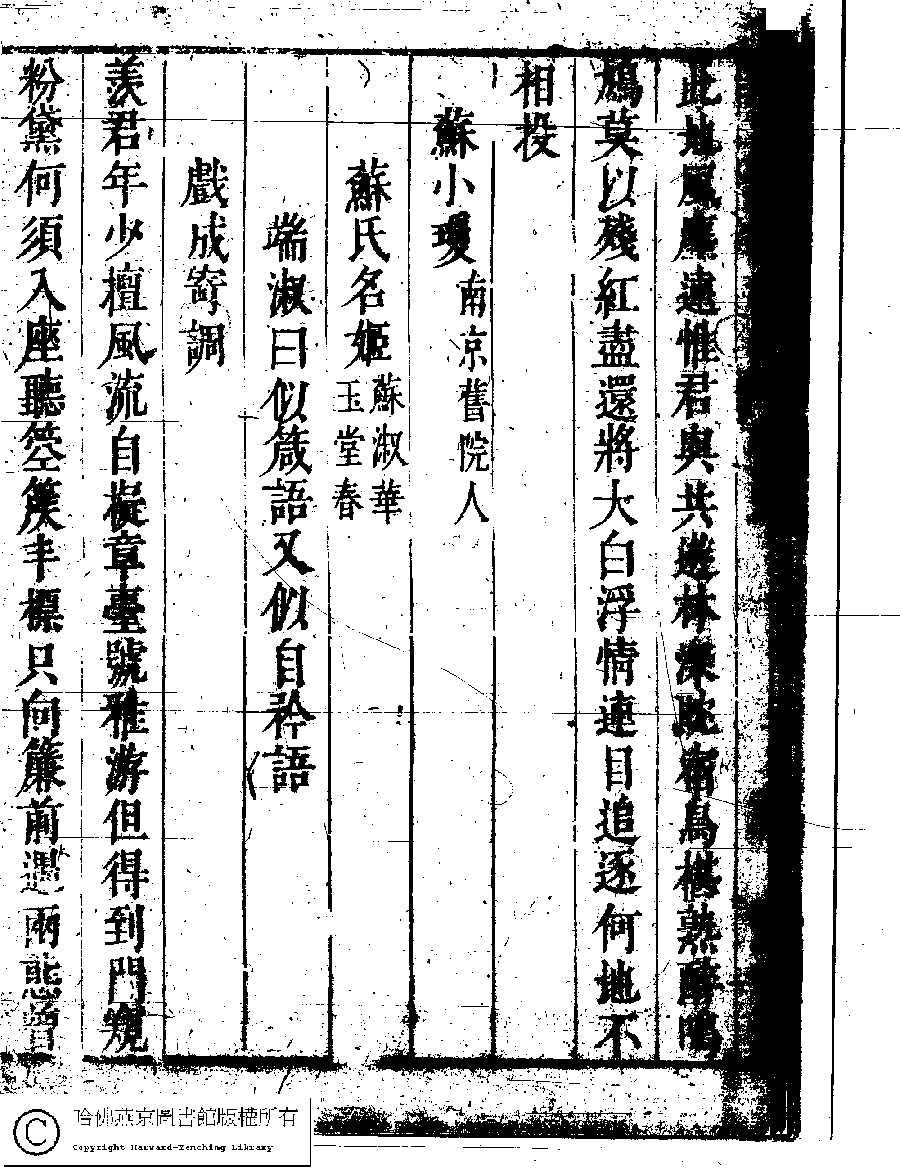 此地風塵遠惟君與共遊林深眈宿鳥椹熟醉鳴
鳩莫以殘紅盡還將大白浮情連目追逐何地不
相投
蘇小瓊南京舊院人
蘇氏名姬蘇淑華
玉堂春
端淑曰似箴語又似自矜語
戲成寄調
羨君年少擅風流自擬章臺號雅游但得到門窺
粉黛何須入座聽箜篌丰標只向簾前遇兩態
哈佛燕京圖書館版權所有
Copyright Harvard-Yenching Library